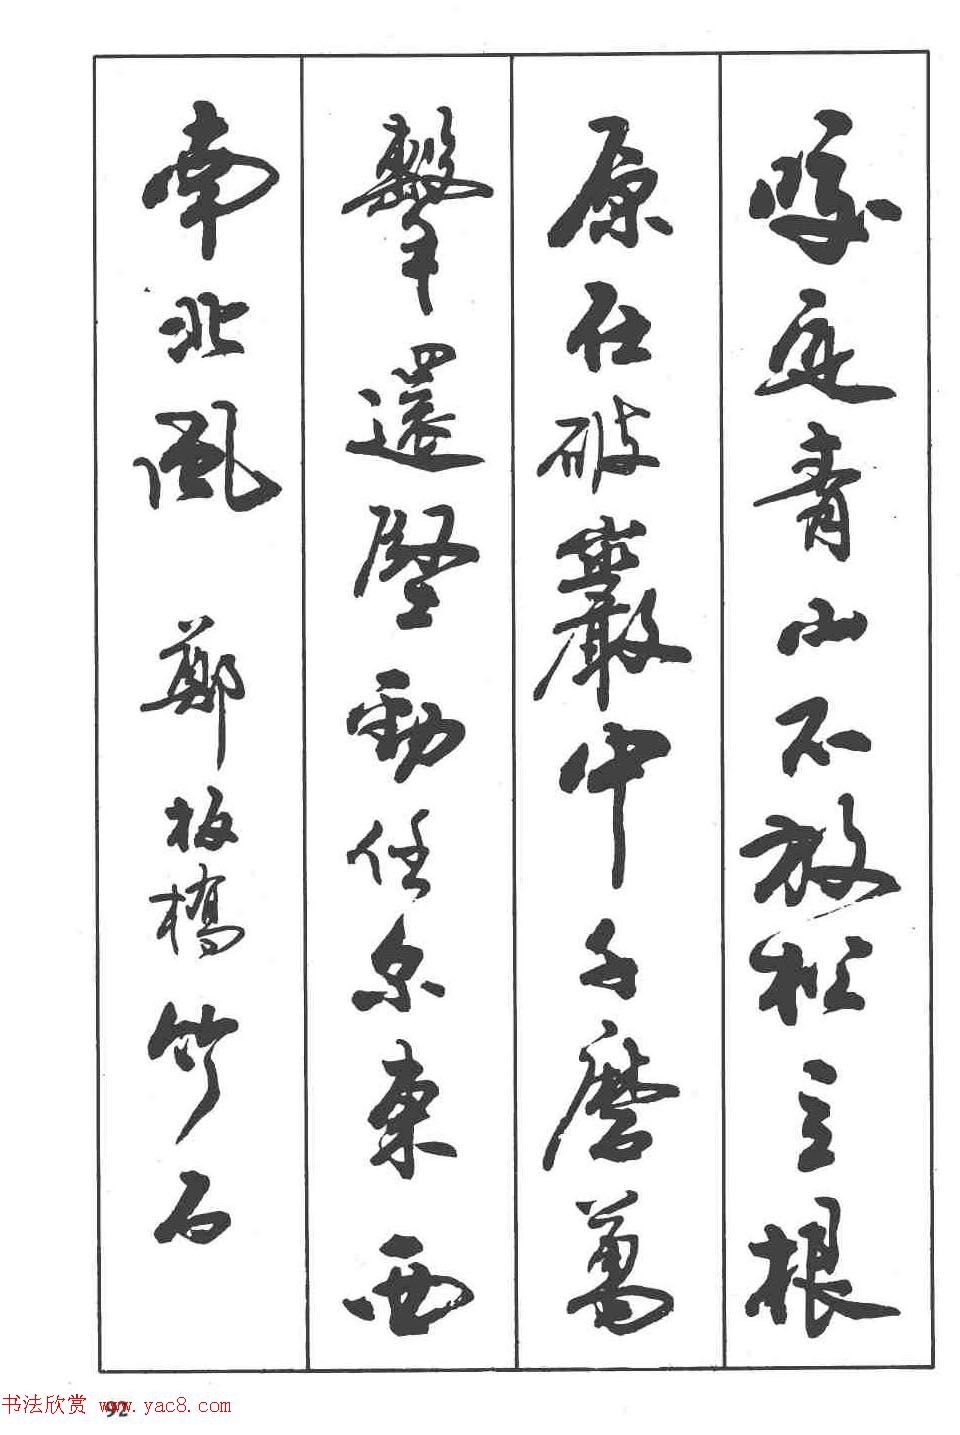 咬定青山不放松立根
原在破巖中千磨萬
擊還堅勁任尔東西
南北風 鄭板橋 竹石
书法欣赏 www.yac8.com
92